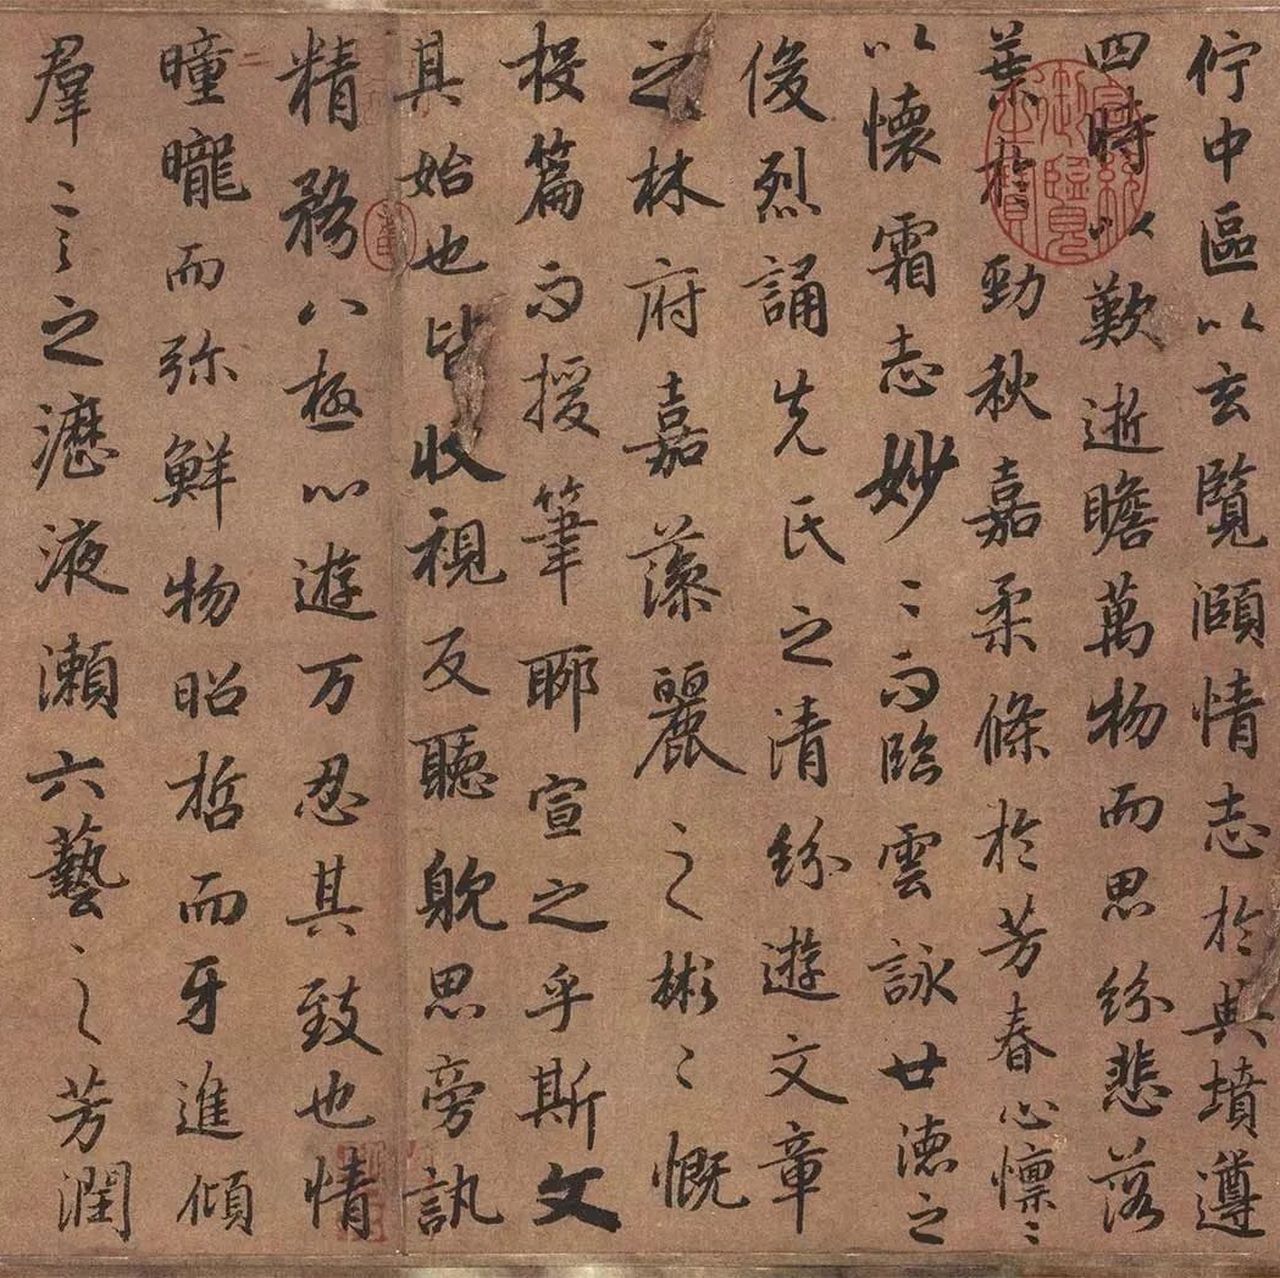 佇中區以玄覽頤情志於典墳遵
四時以歎逝瞻萬物而思紛悲落
葉於勁秋嘉柔條於芳春心懍〻
以懷霜志妙〻而臨雲詠世德之
俊烈誦先民之清紛遊文章
之林府嘉藻麗之彬〻慨
投篇而援筆聊宣之乎斯文
其始也皆收視反聽耽思旁訊
精務八極心遊万忍其致也情
曈曨而弥鮮物昭晢而牙進傾
羣〻言之瀝液瀨六藝之芳潤